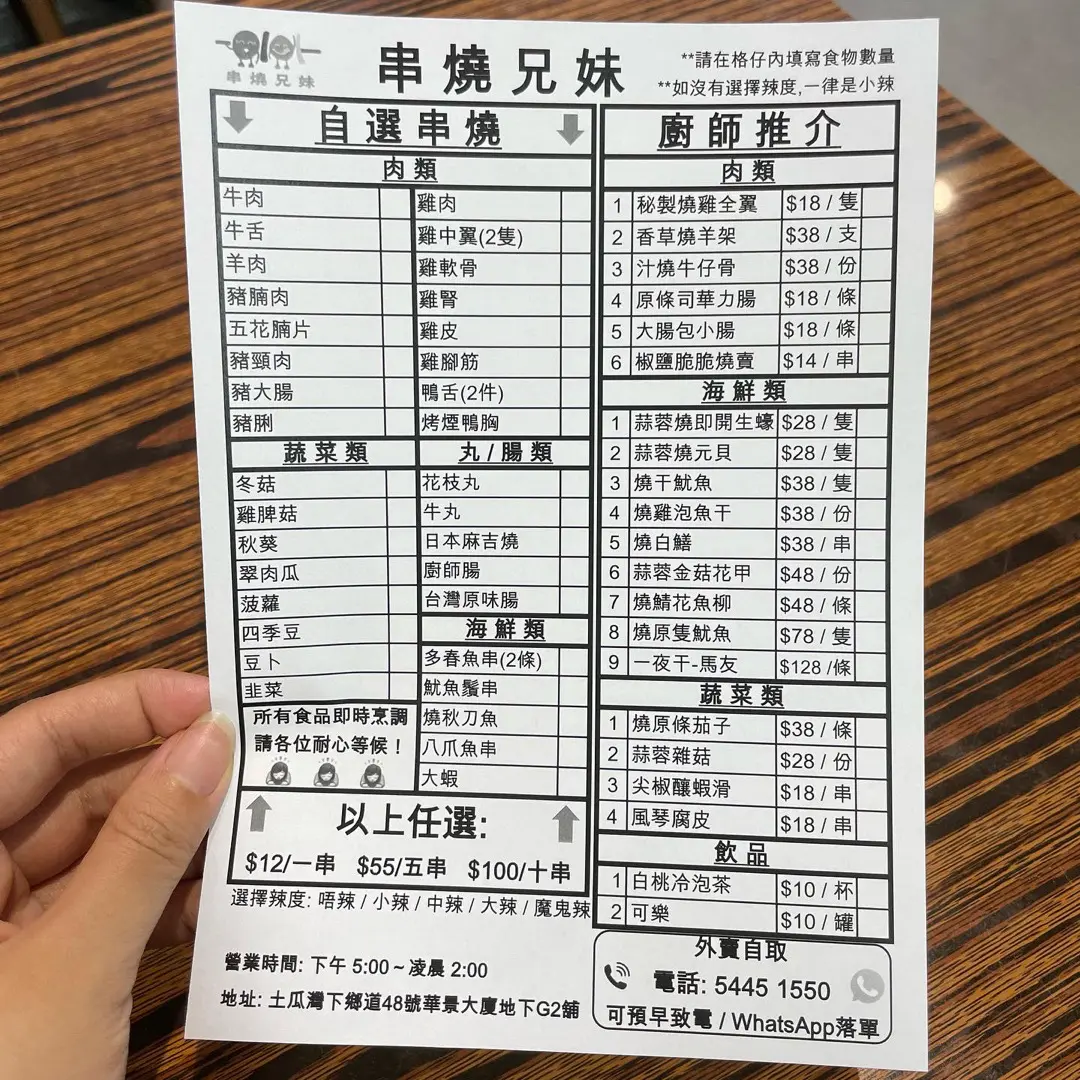 串燒兄妹
串燒兄妹
**請在格仔內填寫食物數量
**如沒有選擇辣度,一律是小辣
自選串燒
肉類
牛肉
牛舌
羊肉
豬腩肉
五花腩片
豬頸肉
豬大腸
豬脷
雞肉
雞中翼(2隻)
雞軟骨
雞腎
雞皮
雞腳筋
鴨舌(2件)
烤煙鴨胸
蔬菜類
冬菇
雞脾菇
秋葵
翠肉瓜
菠蘿
四季豆
豆卜
韭菜
丸/腸類
花枝丸
牛丸
日本麻吉燒
廚師腸
台灣原味腸
海鮮類
多春魚串(2條)
魷魚鬚串
燒秋刀魚
八爪魚串
大蝦
所有食品即時烹調
請各位耐心等候！
以上任選:
$12/一串 $55/五串 $100/十串
選擇辣度: 唔辣 / 小辣 / 中辣 / 大辣 / 魔鬼辣
營業時間: 下午 5:00 ~ 凌晨 2:00
地址: 土瓜灣下鄉道48號華景大廈地下G2舖
廚師推介
肉類
1 秘製燒雞全翼 $18 / 隻
2 香草燒羊架 $38 / 支
3 汁燒牛仔骨 $38 / 份
4 原條司華力腸 $18 / 條
5 大腸包小腸 $18 / 條
6 椒鹽脆脆燒賣 $14 / 串
海鮮類
1 蒜蓉燒即開生蠔 $28 / 隻
2 蒜蓉燒元貝 $28 / 隻
3 燒干魷魚 $38 / 隻
4 燒雞泡魚干 $38 / 份
5 燒白鱔 $38 / 串
6 蒜蓉金菇花甲 $48 / 份
7 燒鯖花魚柳 $48 / 條
8 燒原隻魷魚 $78 / 隻
9 一夜干-馬友 $128 /條
蔬菜類
1 燒原條茄子 $38 / 條
2 蒜蓉雜菇 $28 / 份
3 尖椒釀蝦滑 $18 / 串
4 風琴腐皮 $18 / 串
飲品
1 白桃冷泡茶 $10 / 杯
2 可樂 $10 / 罐
外賣自取
電話: 5445 1550
可預早致電 / WhatsApp落單